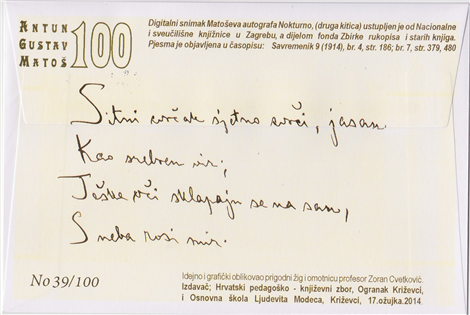 ANTUN
GUSTAV
MATOŠ
100
Digitalni snimak Matoševa autografa Nokturno, (druga kitica) ustupljen je od Nacionalne
i sveučilišne knjižnice u Zagrebu, a dijelom fonda Zbirke rukopisa i starih knjiga.
Pjesma je objavljena u časopisu: Savremenik 9 (1914), br. 4, str. 186; br. 7, str. 379, 480
Sitni cvrčak sjetno cvrči, jasan
Kao srebren vir;
Teške oči sklapaju se na san,
S neba rosi mir.
No 39/100
Idejno i grafički oblikovao prigodni žig i omotnicu profesor Zoran Cvetković.
Izdavač; Hrvatski pedagoško - književni zbor, Ogranak Križevci,
i Osnovna škola Ljudevita Modeca, Križevci, 17.ožujka.2014